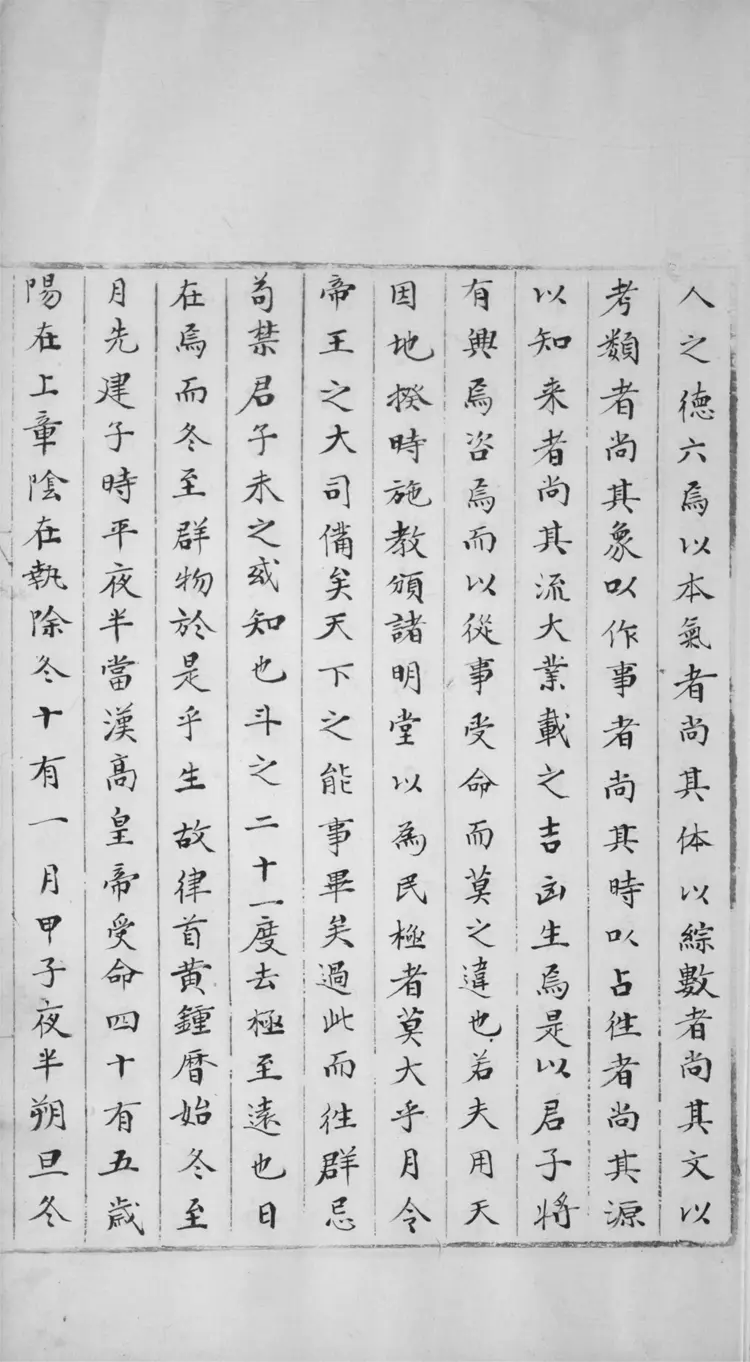 人之德六焉以本氣者尚其体以綜數者尚其文以
考類者尚其象以作事者尚其時以占徃者尚其源
以知来者尚其流大業載之吉凶生焉是以君子將
有興焉咨焉而以從事受命而莫之違也若夫用天
因地揆時施教頒諸明堂以為民極者莫大乎月令
帝王之大司備矣天下之能事畢矣過此而徃群忌
苟禁君子未之或知也斗之二十一度去極至遠也日
在焉而冬至群物於是乎生故律首黄鍾暦始冬至
月先建子時平夜半當漢高皇帝受命四十有五歲
陽在上章陰在執除冬十有一月甲子夜半朔旦冬